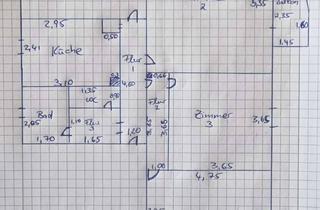 2
3,35
Balkon
2,35
1,80
1.45
2,95
0,50
2,41
Küche
Flur
1
3,10
4,60
0,66
1,35
WC
0,90
Flur
2
Zimmer
3
3,65
Bad
2,05
1,10
Flur
3
1,00
3,65
3,65
1,70
1,65
1,00
3,65
4,75